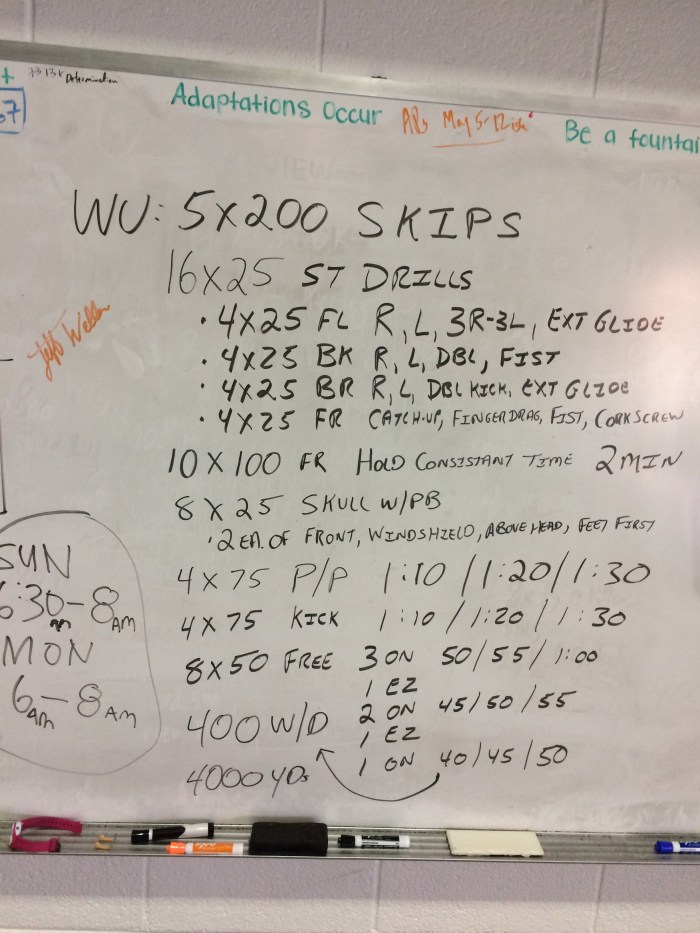 Determination
67
Adaptations Occur
Be a fountai
WU: 5X200 SKIPS
16X25 ST DRILLS
• 4X25 FL R, L, 3R-3L, EXT GLIDE
• 4X25 BK R, L, DBL, FIST
• 4X25 BR R, L, DBL KICK, EXT GLIDE
• 4X25 FR CATCH-UP, FINGERDRAG, FIST, CORKSCREW
10 X 100 FR HOLD CONSISTANT TIME 2 MIN
8 X 25 SKULL W/PB
• 2 EA. OF FRONT, WINDSHIELD, ABOVE HEAD, FEET FIRST
4 X 75 P/P 1:10 / 1:20 / 1:30
4 X 75 KICK 1:10 / 1:20 / 1:30
8X50 FREE 3 ON 50/55/1:00
1 EZ
2 ON 45/50/55
1 EZ
1 ON 40/45/50
400 W/D
4000 YDs
Jeff
SUN
6:30-8
AM AM
MON
6-8
AM AM